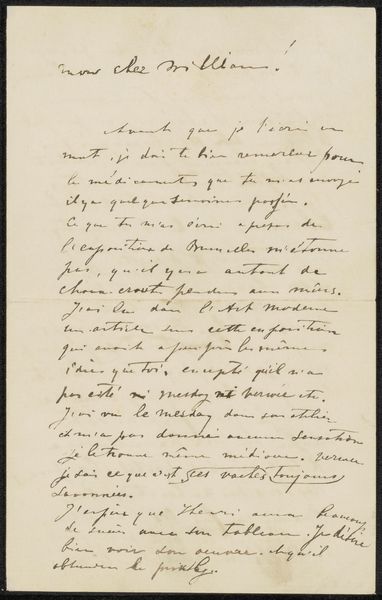 mon cher William!
Avant que je t'écris un
mot, je dois te bien remercier pour
le médicaments que tu m'as envoyé
il y a quelques semaines
Ce que tu m'as écris a propos de
l'exposition de Bruxelles m'étonne
pas, qu'il y a autant de
choux-crout pendus aux murs.
J'ai lu dans l'Art Moderne
un article sur cette exposition
qui avait a peu près les mêmes
idées que toi, excepté qu'il n'a
pas cité ni Mesdag ni Verwée etc.
J'ai vu le Mesdag dans son atelier
et m'a pas donné aucune sensation
je le trouve même médiocre. Verwee
je sais ce que c'est, ces vaches toujours
savonnées.
J'espère que Thenri aura beaucoup
de succès avec son tableau. Je désire
bien voir son oeuvre. et qu'il
obtiendra le prix